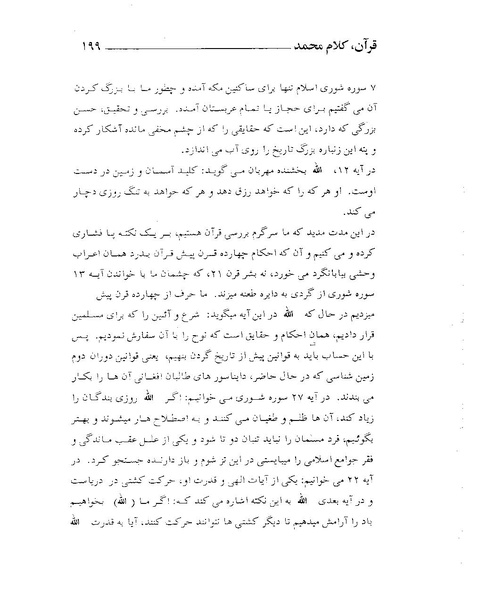 قرآن، کلام محمد ۱۹۹
۷ سوره شوری اسلام تنها برای ساکنین مکه آمده و چطور ما با بزرگ کردن
آن می گفتیم برای حجاز یا تمام عربستان آمده. بررسی و تحقیق، حسن
بزرگی که دارد، این است که حقایقی را که از چشم مخفی مانده آشکار کرده
و پته این زنباره بزرگ تاریخ را روی آب می اندازد.
در آیه ۱۲، الله بخشنده مهربان می گوید: کلید آسمان و زمین در دست
اوست. او هر که را که خواهد رزق دهد و هر که خواهد به تنگ روزی دچار
می کند.
در این مدت مدید که ما سرگرم بررسی قرآن هستیم، بر یک نکته پا فشاری
کرده و می کنیم و آن که احکام چهارده قرن پیش قرآن بدرد همان اعراب
وحشی بیابانگرد می خورد، نه بشر قرن ۲۱، که چشمان ما با خواندن آیه ۱۳
سوره شوری از گردی به دایره طعنه میزند. ما حرف از چهارده قرن پیش
میزدیم در حال که الله در این آیه میگوید: شرع و آئین را که برای مسلمین
قرار دادیم، همان احکام و حقایق است که نوح را با آن سفارش نمودیم. پس
با این حساب باید به قوانین پیش از تاریخ گردن بنهیم، یعنی قوانین دوران دوم
زمین شناسی که در حال حاضر، دایناسور های طالبان افغانی آن ها را بکار
می بندند. در آیه ۲۷ سوره شوری می خوانیم: اگر الله روزی بندگان را
زیاد کند، آن ها ظلم و طغیان می کنند و به اصطلاح هار میشوند و بهتر
بگوئیم، فرد مسلمان را نباید تنبان دو تا شود و یکی از علل عقب ماندگی و
فقر جوامع اسلامی را میبایستی در این تز شوم و باز دارنده جستجو کرد. در
آیه ۲۲ می خوانیم: یکی از آیات الهی و قدرت او، حرکت کشتی در دریاست
و در آیه بعدی الله به این نکته اشاره می کند که: اگر ما ( الله) بخواهیم
باد را آرامش میدهیم تا دیگر کشتی ها نتوانند حرکت کنند، آیا به قدرت الله